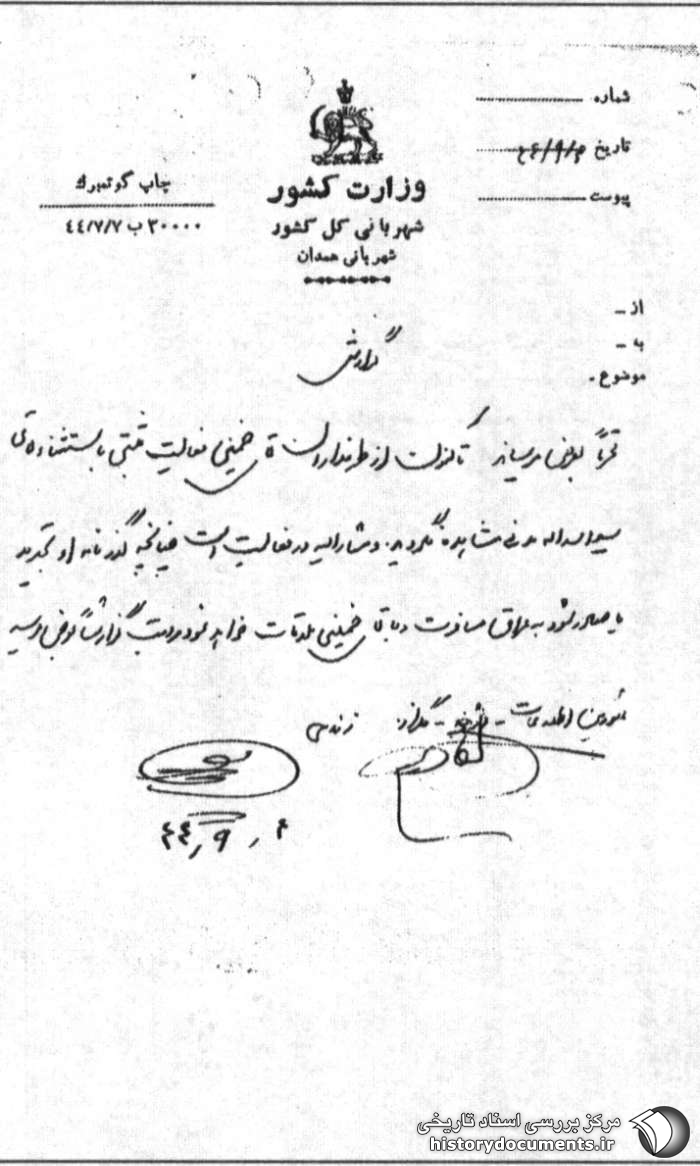 شماره
تاریخ ۴۴/۹/۶
پیوست
وزارت کشور
شهربانی کل کشور
شهربانی همدان
چاپ گوتمبرك
۳۰۰۰۰ ب ۴۴/۷/۷
از -
به -
موضوع -
گزارش
محترماً بعرض میرساند تاکنون از طرفداران خمینی فعالیت باستثناء آقای
سید اسداله مدنی مشاهده نگردیده و مشارالیه در فعالیت است چنانچه گذرنامه او تجدید
یا صادر شود به عراق مسافرت و با آقای خمینی ملاقات خواهد نمود مراتب گزارشاً بعرض میرسد
مأمورین اطلاعات -
۴۴/۹/۶
مرکز بررسی اسناد تاریخی
historydocuments.ir